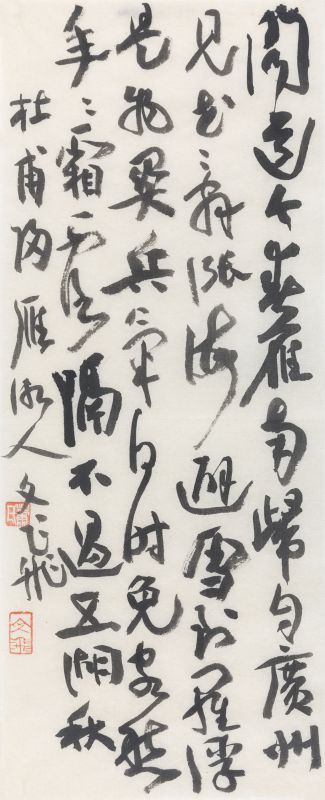 聞道今春雁南歸自廣州
見花辭漲海避雪到羅浮
是物兵氣何時免客愁
年々霜露隔不過五湖秋
杜甫归雁湘人文飛